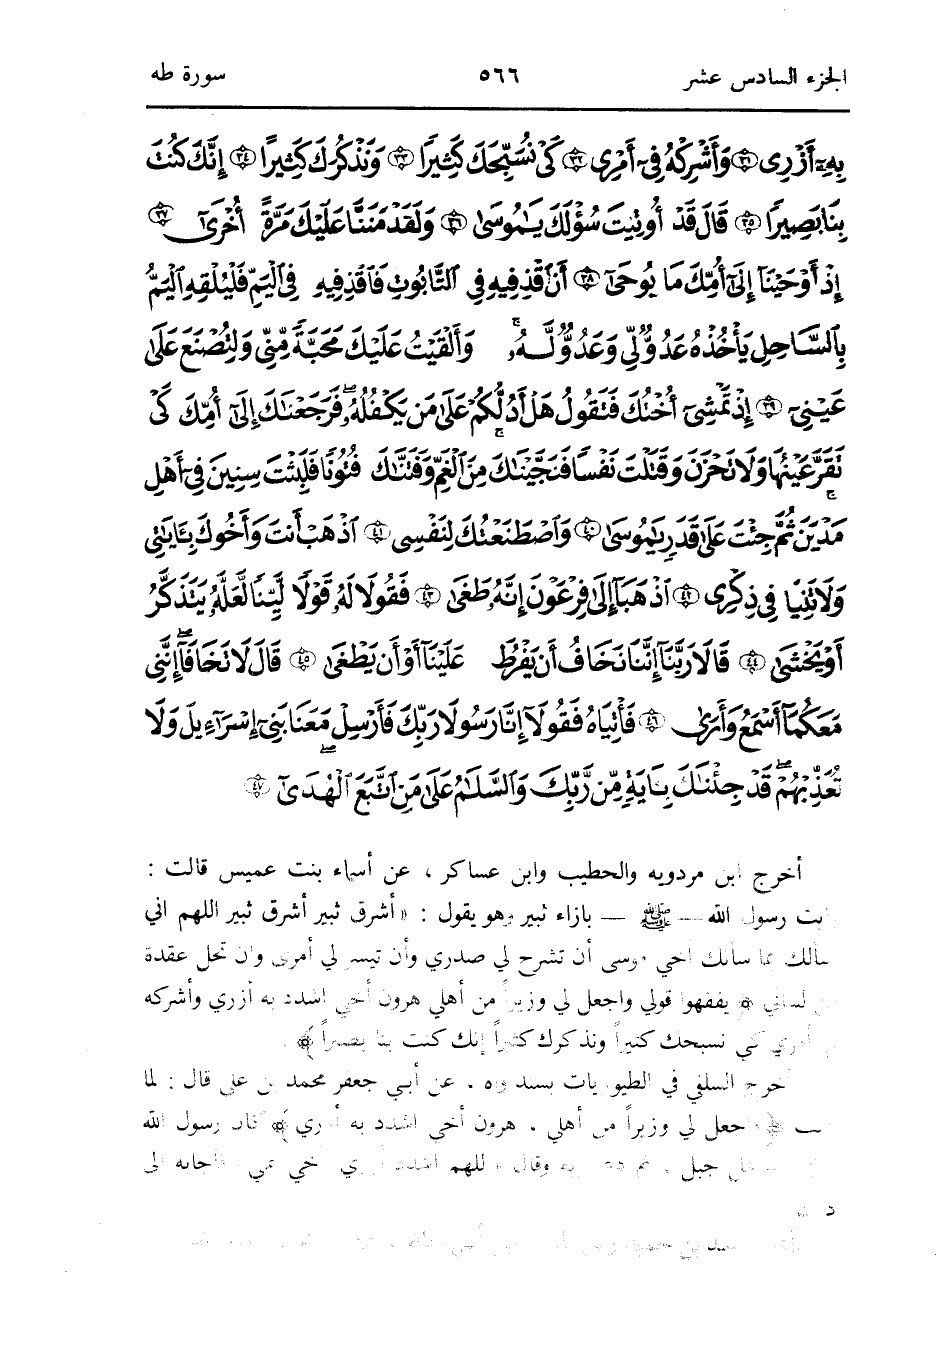 الجزء السادس عشر ٥٦٦ سورة طه
بِهِۦٓ أَزْرِى ٣١ وَأَشْرِكْهُ فِىٓ أَمْرِى ٣٢ كَىْ نُسَبِّحَكَ كَثِيرًا ٣٣ وَنَذْكُرَكَ كَثِيرًا ٣٤ إِنَّكَ كُنتَ
بِنَا بَصِيرًا ٣٥ قَالَ قَدْ أُوتِيتَ سُؤْلَكَ يَٰمُوسَىٰ ٣٦ وَلَقَدْ مَنَنَّا عَلَيْكَ مَرَّةً أُخْرَىٰٓ ٣٧
إِذْ أَوْحَيْنَآ إِلَىٰٓ أُمِّكَ مَا يُوحَىٰٓ ٣٨ أَنِ ٱقْذِفِيهِ فِى ٱلتَّابُوتِ فَٱقْذِفِيهِ فِى ٱلْيَمِّ فَلْيُلْقِهِ ٱلْيَمُّ
بِٱلسَّاحِلِ يَأْخُذْهُ عَدُوٌّ لِّى وَعَدُوٌّ لَّهُۥ ۚ وَأَلْقَيْتُ عَلَيْكَ مَحَبَّةً مِّنِّى وَلِتُصْنَعَ عَلَىٰ
عَيْنِىٓ ٣٩ إِذْ تَمْشِىٓ أُخْتُكَ فَتَقُولُ هَلْ أَدُلُّكُمْ عَلَىٰ مَن يَكْفُلُهُۥ ۖ فَرَجَعْنَٰكَ إِلَىٰٓ أُمِّكَ كَىْ
تَقَرَّ عَيْنُهَا وَلَا تَحْزَنَ ۚ وَقَتَلْتَ نَفْسًا فَنَجَّيْنَٰكَ مِنَ ٱلْغَمِّ وَفَتَنَّٰكَ فُتُونًا ۚ فَلَبِثْتَ سِنِينَ فِىٓ أَهْلِ
مَدْيَنَ ثُمَّ جِئْتَ عَلَىٰ قَدَرٍ يَٰمُوسَىٰ ٤٠ وَٱصْطَنَعْتُكَ لِنَفْسِى ٤١ ٱذْهَبْ أَنتَ وَأَخُوكَ بِـَٔايَٰتِى
وَلَا تَنِيَا فِى ذِكْرِى ٤٢ ٱذْهَبَآ إِلَىٰ فِرْعَوْنَ إِنَّهُۥ طَغَىٰ ٤٣ فَقُولَا لَهُۥ قَوْلًا لَّيِّنًا لَّعَلَّهُۥ يَتَذَكَّرُ
أَوْ يَخْشَىٰ ٤٤ قَالَا رَبَّنَآ إِنَّنَا نَخَافُ أَن يَفْرُطَ عَلَيْنَآ أَوْ أَن يَطْغَىٰ ٤٥ قَالَ لَا تَخَافَآ ۖ إِنَّنِى
مَعَكُمَآ أَسْمَعُ وَأَرَىٰ ٤٦ فَأْتِيَاهُ فَقُولَآ إِنَّا رَسُولَا رَبِّكَ فَأَرْسِلْ مَعَنَا بَنِىٓ إِسْرَٰٓءِيلَ وَلَا
تُعَذِّبْهُمْ ۖ قَدْ جِئْنَٰكَ بِـَٔايَةٍ مِّن رَّبِّكَ ۖ وَٱلسَّلَٰمُ عَلَىٰ مَنِ ٱتَّبَعَ ٱلْهُدَىٰٓ ٤٧
أخرج ابن مردويه والخطيب وابن عساكر ، عن أسماء بنت عميس قالت :
رسول الله — ﷺ — بازاء ثبير وهو يقول : « أشرق ثبير أشرق ثبير اللهم اني
بما سألك أخي موسى أن تشرح لي صدري وأن تيسر لي أمري وأن تحل عقدة
لساني ﴿ يفقهوا قولي واجعل لي وزيراً من أهلي هرون أخي اشدد به أزري وأشركه
أمري كي نسبحك كثيراً ونذكرك كثيراً إنك كنت بنا بصيراً ﴾ .
السلفي في الطيوريات بسند . عن أبي جعفر محمد بن علي قال : لما
لي وزيراً من أهلي . هرون أخي اشدد به أزري ﴾ كان رسول الله
جبل وقال اشدد